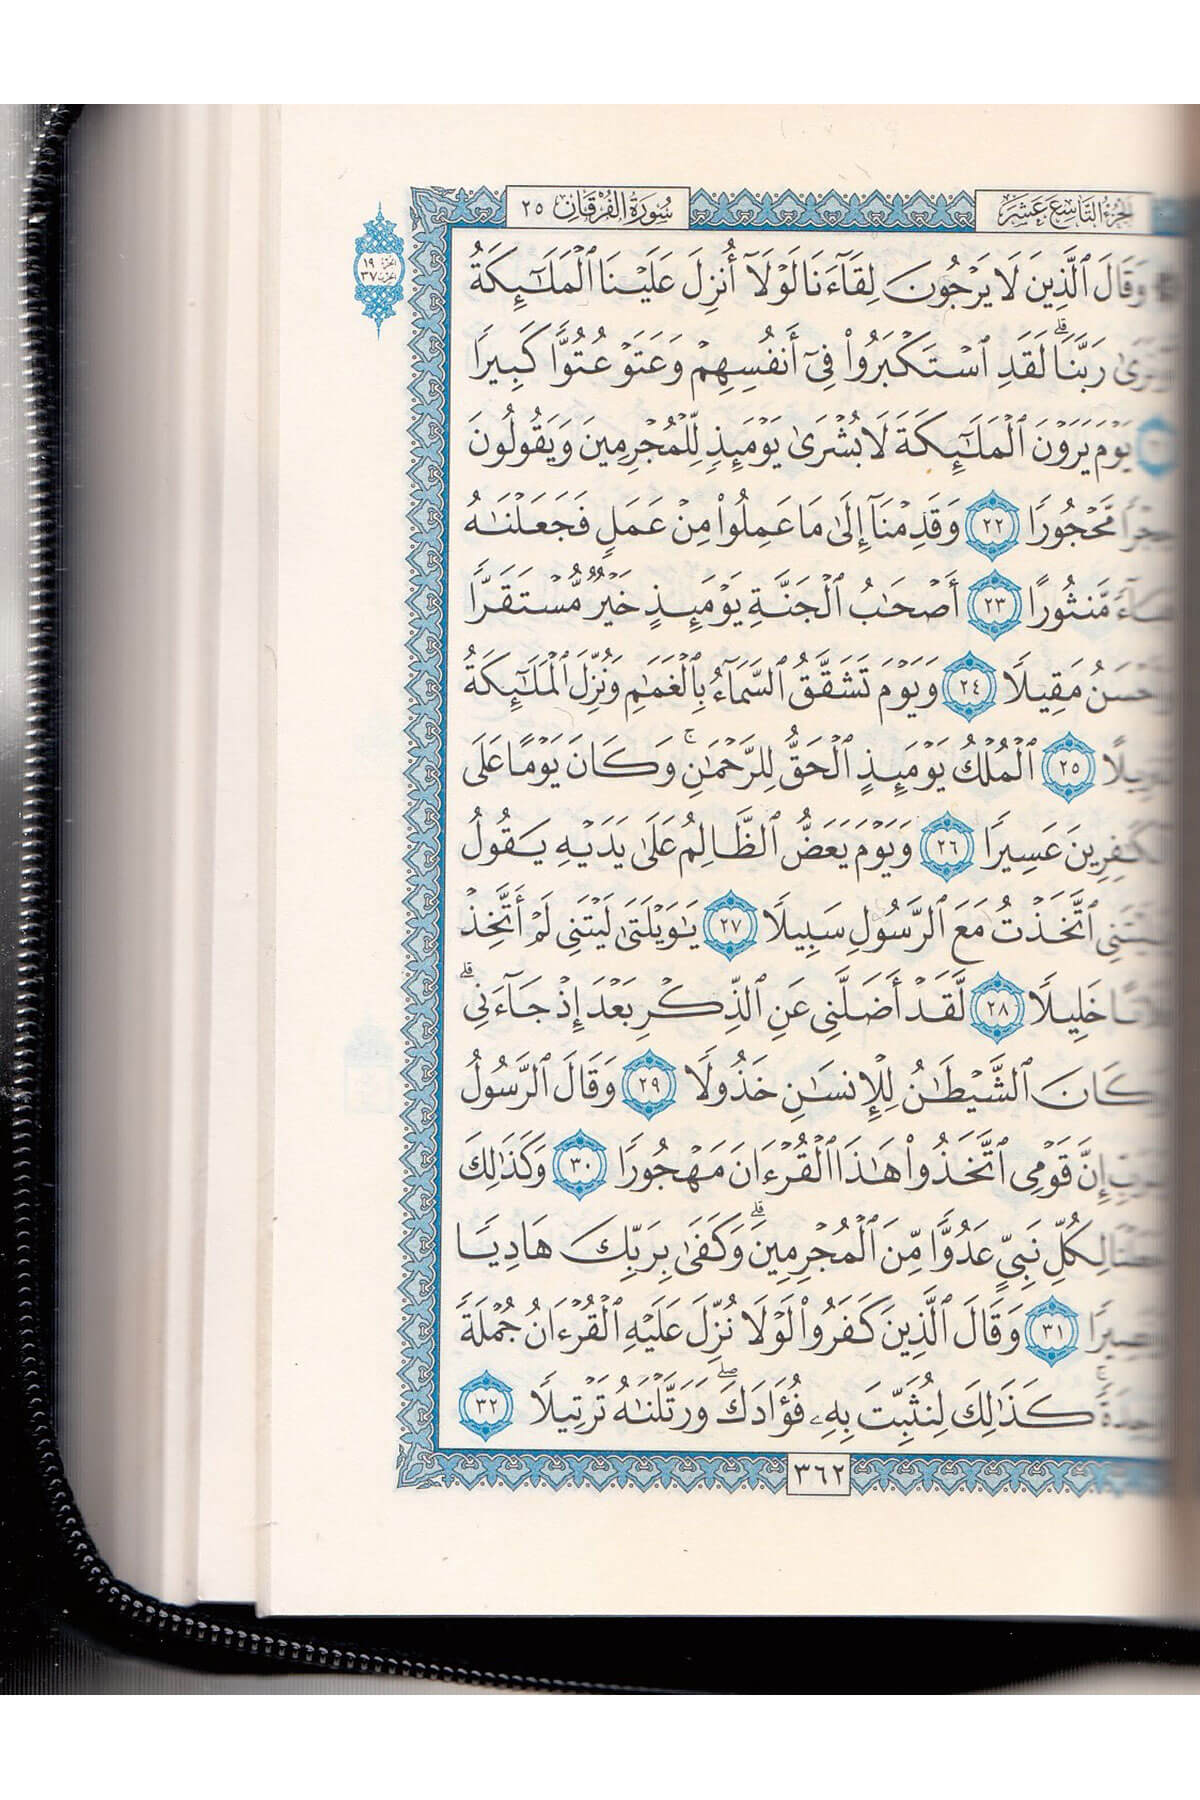 الجزء التاسع عشر
سورة الفرقان ٢٥
الجزء ١٩
الحزب ٣٧
وَقَالَ ٱلَّذِينَ لَا يَرْجُونَ لِقَآءَنَا لَوْلَآ أُنزِلَ عَلَيْنَا ٱلْمَلَـٰٓئِكَةُ
رَبَّنَا ۗ لَقَدِ ٱسْتَكْبَرُوا۟ فِىٓ أَنفُسِهِمْ وَعَتَوْ عُتُوًّا كَبِيرًا
يَوْمَ يَرَوْنَ ٱلْمَلَـٰٓئِكَةَ لَا بُشْرَىٰ يَوْمَئِذٍ لِّلْمُجْرِمِينَ وَيَقُولُونَ
حِجْرًا مَّحْجُورًا ٢٢ وَقَدِمْنَآ إِلَىٰ مَا عَمِلُوا۟ مِنْ عَمَلٍ فَجَعَلْنَـٰهُ
مَّنثُورًا ٢٣ أَصْحَـٰبُ ٱلْجَنَّةِ يَوْمَئِذٍ خَيْرٌ مُّسْتَقَرًّا
وَأَحْسَنُ مَقِيلًا ٢٤ وَيَوْمَ تَشَقَّقُ ٱلسَّمَآءُ بِٱلْغَمَـٰمِ وَنُزِّلَ ٱلْمَلَـٰٓئِكَةُ
تَنزِيلًا ٢٥ ٱلْمُلْكُ يَوْمَئِذٍ ٱلْحَقُّ لِلرَّحْمَـٰنِ ۚ وَكَانَ يَوْمًا عَلَى
ٱلْكَـٰفِرِينَ عَسِيرًا ٢٦ وَيَوْمَ يَعَضُّ ٱلظَّالِمُ عَلَىٰ يَدَيْهِ يَقُولُ
يَـٰلَيْتَنِى ٱتَّخَذْتُ مَعَ ٱلرَّسُولِ سَبِيلًا ٢٧ يَـٰوَيْلَتَىٰ لَيْتَنِى لَمْ أَتَّخِذْ
خَلِيلًا ٢٨ لَّقَدْ أَضَلَّنِى عَنِ ٱلذِّكْرِ بَعْدَ إِذْ جَآءَنِى ۗ
وَكَانَ ٱلشَّيْطَـٰنُ لِلْإِنسَـٰنِ خَذُولًا ٢٩ وَقَالَ ٱلرَّسُولُ
يَـٰرَبِّ إِنَّ قَوْمِى ٱتَّخَذُوا۟ هَـٰذَا ٱلْقُرْءَانَ مَهْجُورًا ٣٠ وَكَذَٰلِكَ
جَعَلْنَا لِكُلِّ نَبِىٍّ عَدُوًّا مِّنَ ٱلْمُجْرِمِينَ ۗ وَكَفَىٰ بِرَبِّكَ هَادِيًا
وَنَصِيرًا ٣١ وَقَالَ ٱلَّذِينَ كَفَرُوا۟ لَوْلَا نُزِّلَ عَلَيْهِ ٱلْقُرْءَانُ جُمْلَةً
وَٰحِدَةً ۚ كَذَٰلِكَ لِنُثَبِّتَ بِهِۦ فُؤَادَكَ ۖ وَرَتَّلْنَـٰهُ تَرْتِيلًا ٣٢
٣٦٢